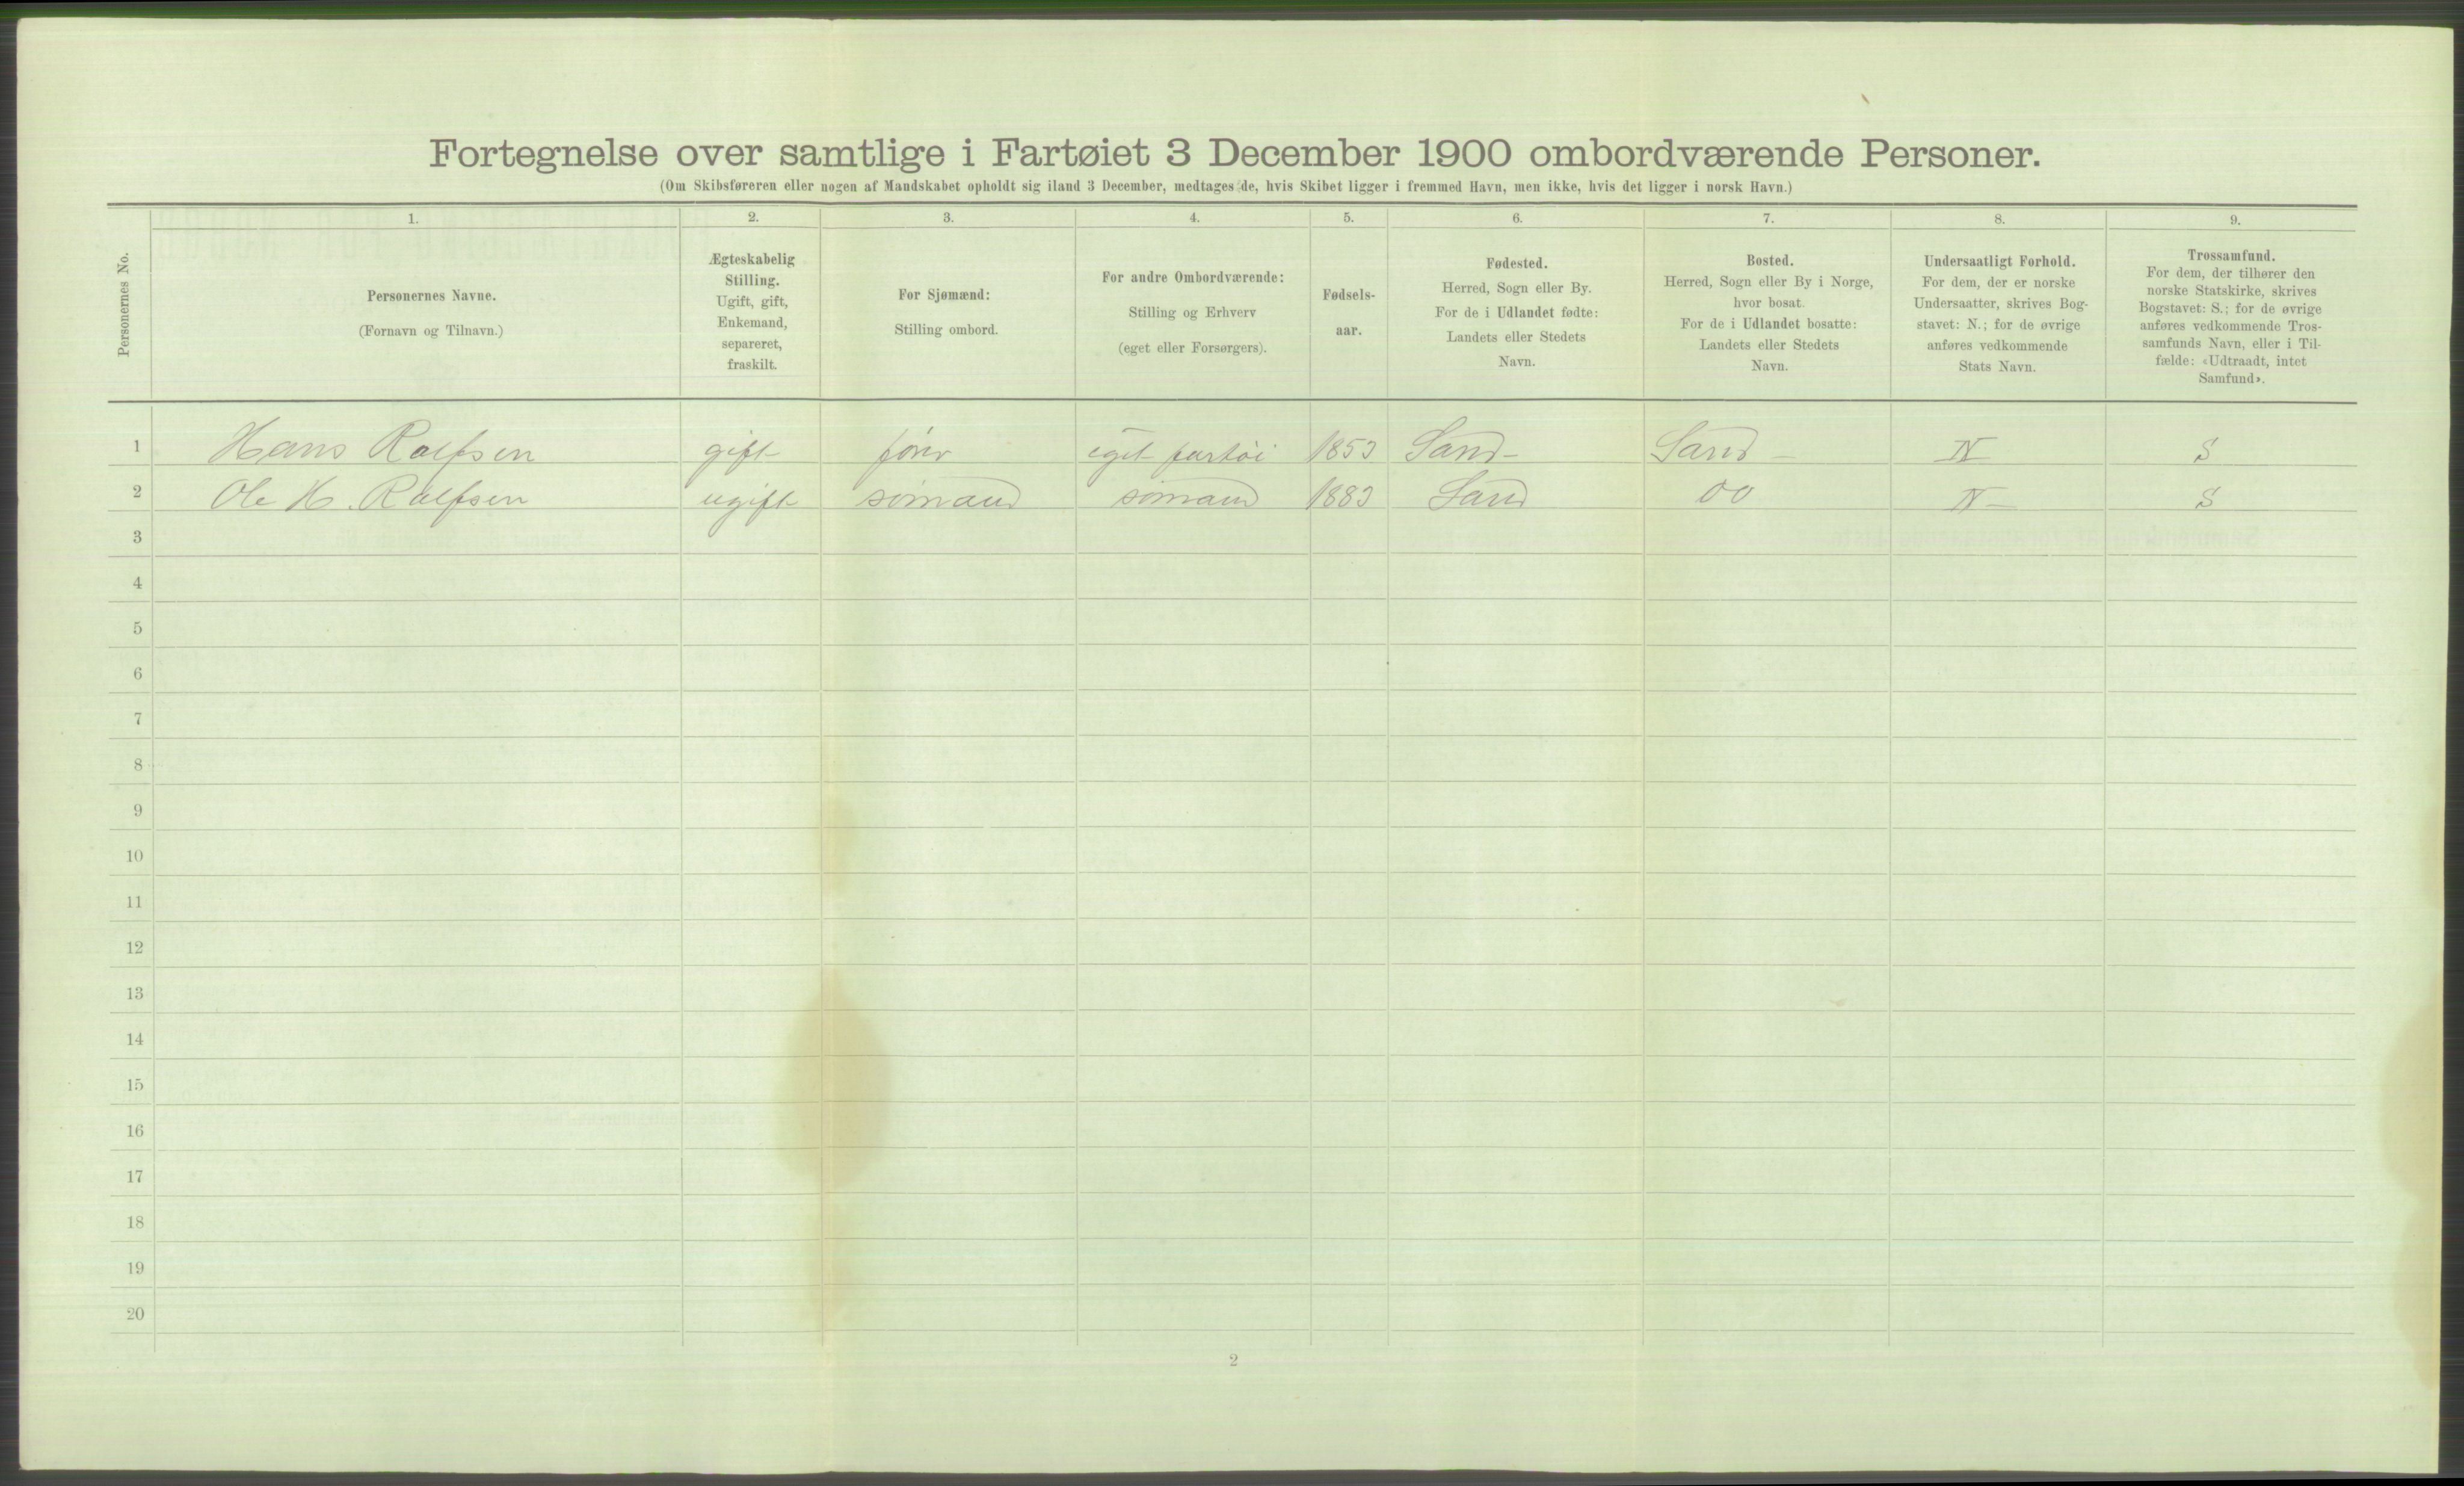 Fortegnelse over samtlige i Fartøiet 3 December 1900 ombordværende Personer.
(Om Skibsføreren eller nogen af Mandskabet opholdt sig iland 3 December, medtages de, hvis Skibet ligger i fremmed Havn, men ikke, hvis det ligger i norsk Havn.)
Personernes No.
1.
Personernes Navne.
(Fornavn og Tilnavn.)
2.
Ægteskabelig
Stilling.
Ugift, gift,
Enkemand,
separeret,
fraskilt.
3.
For Sjømænd:
Stilling ombord.
4.
For andre Ombordværende:
Stilling og Erhverv
(eget eller Forsørgers).
5.
Fødsels-
aar.
6.
Fødested.
Herred, Sogn eller By.
For de i Udlandet fødte:
Landets eller Stedets
Navn.
7.
Bosted.
Herred, Sogn eller By i Norge,
hvor bosat.
For de i Udlandet bosatte:
Landets eller Stedets
Navn.
8.
Undersaatligt Forhold.
For dem, der er norske
Undersaatter, skrives Bog-
stavet: N.; for de øvrige
anføres vedkommende
Stats Navn.
9.
Trossamfund.
For dem, der tilhører den
norske Statskirke, skrives
Bogstavet: S.; for de øvrige
anføres vedkommende Tros-
samfunds Navn, eller i Til-
fælde: «Udtraadt, intet
Samfund».
1 Hans Ralfsen gift fører eget fartöi 1853 Sand - Sand - N S
2 Ole H. Ralfsen ugift sömand sömand 1883 Sand do N - S
3
4
5
6
7
8
9
10
11
12
13
14
15
16
17
18
19
20
2